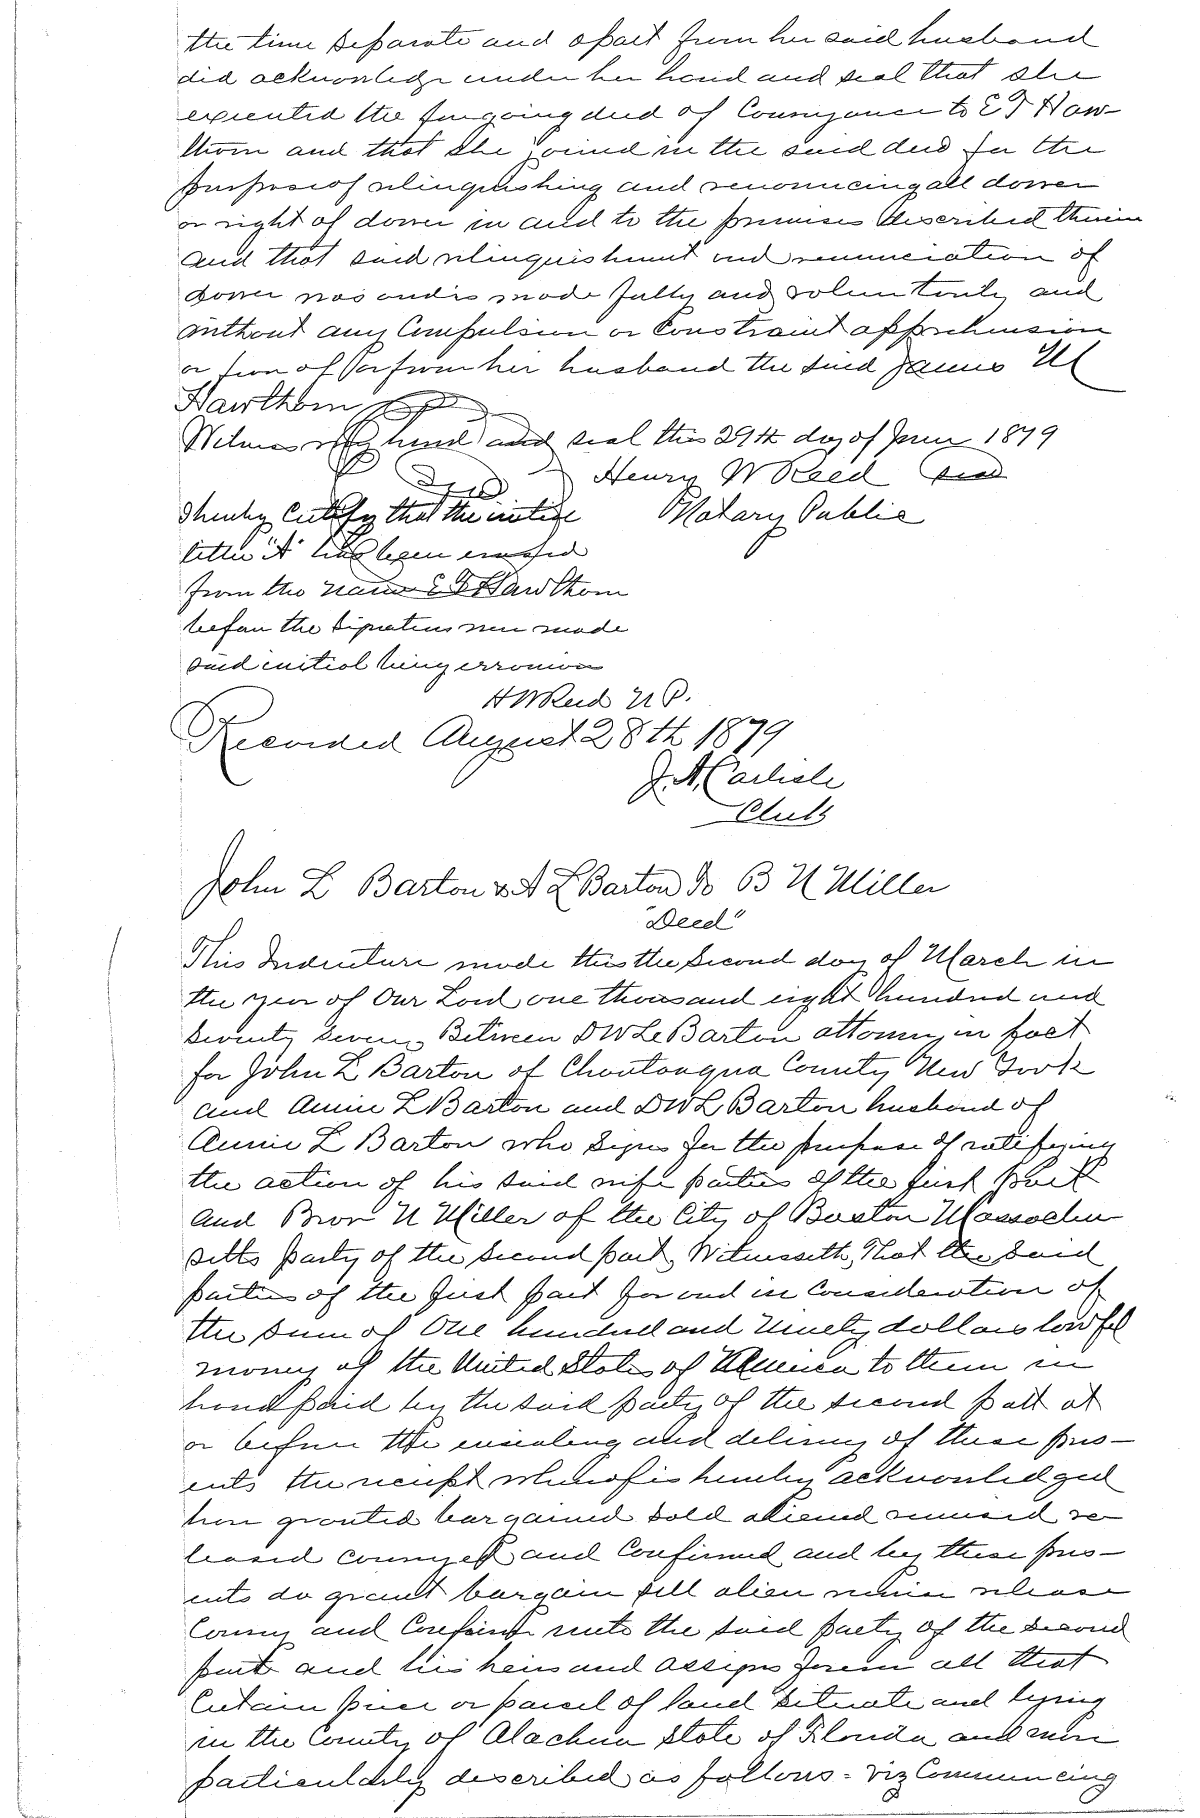 the time separate and apart from her said husband
did acknowledge under her hand and seal that she
executed the foregoing deed of Conveyance to E T Haw-
thorn and that she joined in the said deed for the
purpose of relinquishing and renouncing all dower
or right of dower in and to the premises described therein
and that said relinquishment and renunciation of
dower was and is made fully and voluntarily and
without any Compulsion or Constraint apprehension
or fear of or from her husband the said James M
Hawthorn
Witness my hand and seal this 29th day of June 1879
Henry W Reed seal
I hereby Certify that the initial Notary Public
letter "A" has been erased
from the name E T Hawthorn
before the signatures were made
said initial being erroneous
H W Reed N P.
Recorded August 28th 1879
J. A. Carlisle
Clerk
John L Barton & A L Barton To B N Miller
"Deed"
This Indenture made this the Second day of March in
the year of Our Lord one thousand eight hundred and
Seventy Seven, Between D W L Barton attorney in fact
for John L Barton of Choutauqua County New York
and Annie L Barton and D W L Barton husband of
Annie L Barton who signs for the purpose of ratifying
the action of his said wife parties of the first part
and N Miller of the City of Boston Massachu
setts party of the Second part, Witnesseth, That the Said
parties of the first part for and in Consideration of
the sum of One hundred and Ninety dollars lawful
money of the United States of America to them in
hand paid by the said party of the second part at
or before the ensealing and delivery of these pres-
ents the receipt whereof is hereby acknowledged
have granted bargained sold aliened remised re
leased conveyed and Confirmed and by these pres-
ents do grant bargain sell alien remise release
Convey and Confirm unto the said party of the second
part and his heirs and assigns forever all that
Certain piece or parcel of land situate and lying
in the County of Alachua State of Florida and more
particularly described as follows - viz Commencing